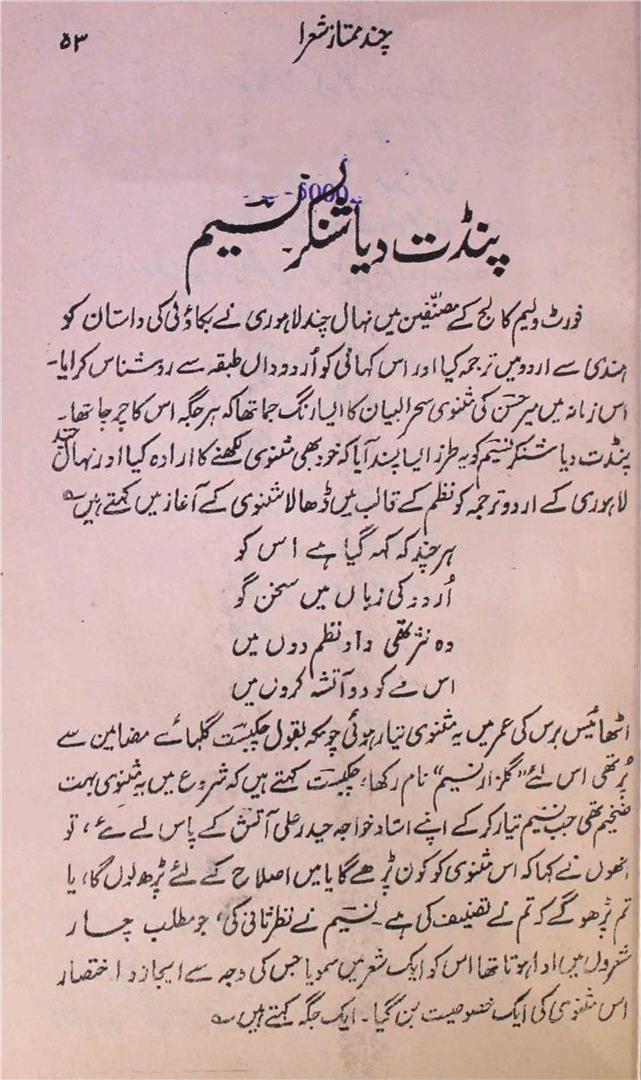 چند ممتاز شعرا ۵۳
5000
پنڈت دیا شنکر نسیم
فورٹ ولیم کالج کے مصنّفین میں نہال چند لاہوری نے بکاؤلی کی داستان کو
ہندی سے اردو میں ترجمہ کیا اور اس کہانی کو اُردو داں طبقہ سے روشناس کرایا۔
اس زمانہ میں میر حسن کی مثنوی سحر البیان کا ایسا رنگ جما تھا کہ ہر جگہ اس کا چرچا تھا۔
پنڈت دیا شنکر نسیم کو یہ طرز ایسا پسند آیا کہ خود بھی مثنوی لکھنے کا ارادہ کیا اور نہال چند
لاہوری کے اردو ترجمہ کو نظم کے قالب میں ڈھالا مثنوی کے آغاز میں کہتے ہیں ؎
ہر چند کہ کہہ گیا ہے اس کو
اُردو کی زباں میں سخن گو
وہ نثر تھی داد نظم دوں میں
اس مے کو دو آتشہ کروں میں
اٹھائیس برس کی عمر میں یہ مثنوی تیار ہوئی چونکہ بقول چکبست گلہائے مضامین سے
پُر تھی اس لئے "گلزار نسیم" نام رکھا، چکبست کہتے ہیں کہ شروع میں یہ مثنوی بہت
ضخیم تھی جب نسیم تیار کر کے اپنے استاد خواجہ حیدر علی آتش کے پاس لے گئے، تو
انھوں نے کہا کہ اس مثنوی کو کون پڑھے گا یا میں اصلاح کے لئے پڑھ لوں گا، یا
تم پڑھو گے کہ تم نے تصنیف کی ہے۔ نسیم نے نظر ثانی کی، جو مطلب چار
شعروں میں ادا ہوتا تھا اس کو ایک شعر میں سمویا جس کی وجہ سے ایجاز و اختصار
اس مثنوی کی ایک خصوصیت بن گیا۔ ایک جگہ کہتے ہیں ؎